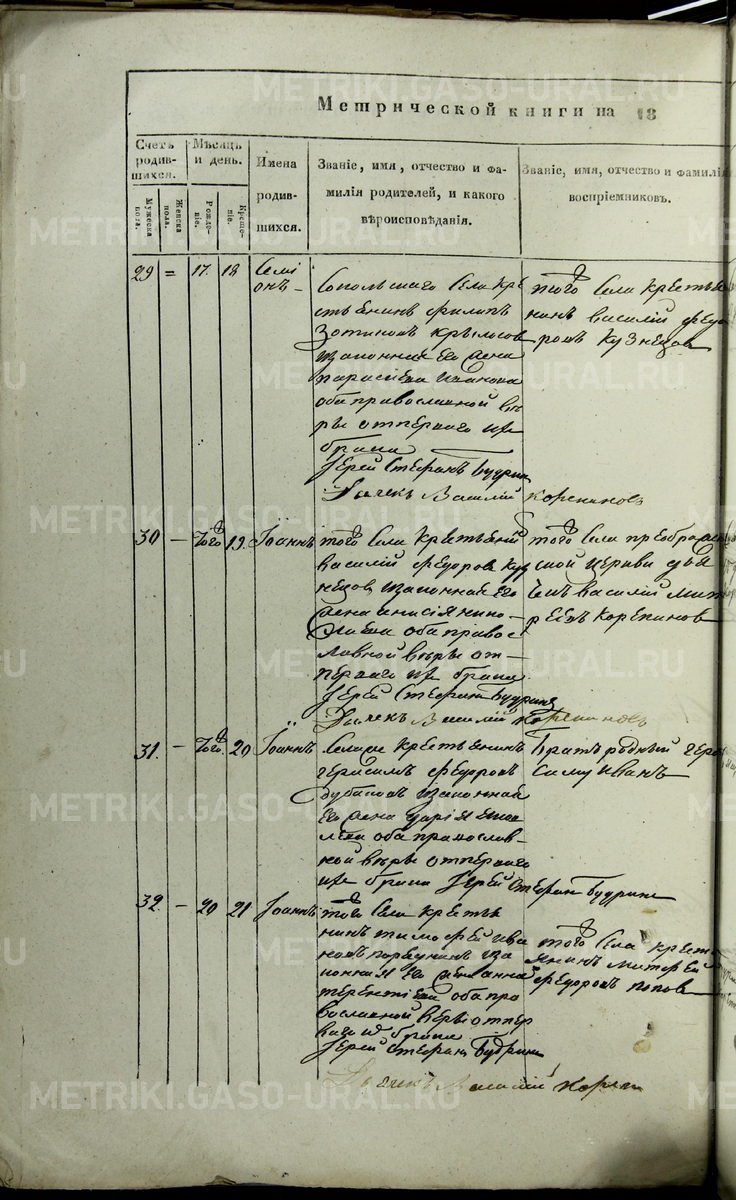 Метрической книги на 18
Счетъ родив-шихся.
Мужеска пола.
Женска пола.
Мѣсяцъ и день.
Рожде-ніе.
Креще-ніе.
Имена родив-шихся.
Званіе, имя, отчество и фа-
милія родителей, и какого
вѣроисповѣданія.
Званіе, имя, отчество и фамилія
воспріемниковъ.
29 = 17. 18 Семі
онъ –
Сопольшаго села кре
стьянинъ Филипъ
Зотиковъ Крылосов
и законная его жена
Параскева
оба православной вѣ
ры отперваго их
брака
Іерей Стефанъ Будрин
Дьячекъ Василій Корепиновъ
того села крестья
нинъ Василій Федо
ровъ Кузнецовъ
30 – Того 19. Іоаннъ
того села крестьянин
Василій Федоров Куз
нецов и законная его
жена Анисія Нико
лаева оба правос
лавной вѣры от–
перваго их брака
Іерей Стефан Будринъ
Дьячекъ Василій Корепиновъ
того села преображен
ской церкви дья
чекъ Василій
Корепинов
31. – Того. 20 Іоаннъ
села крестьянинъ
Герасимъ Федоровъ
и законная
его жена Дарія
оба православ
ной вѣры отперваго
их брака Іерей Стефан Будринъ
Братъ родный Гера
симу Иванъ
32. – 20 21 Іоаннъ
того села крестья
нинъ Тимофей Ива
новъ за
конная его жена Анна
Терентіева оба пра
вославной веры отпер
ваго их брака
Іерей Стефанъ Будрин
Дьячекъ Василій Кореп
того села крест
янинъ
Федоровъ Попов
METRIKI.GASO-URAL.RU